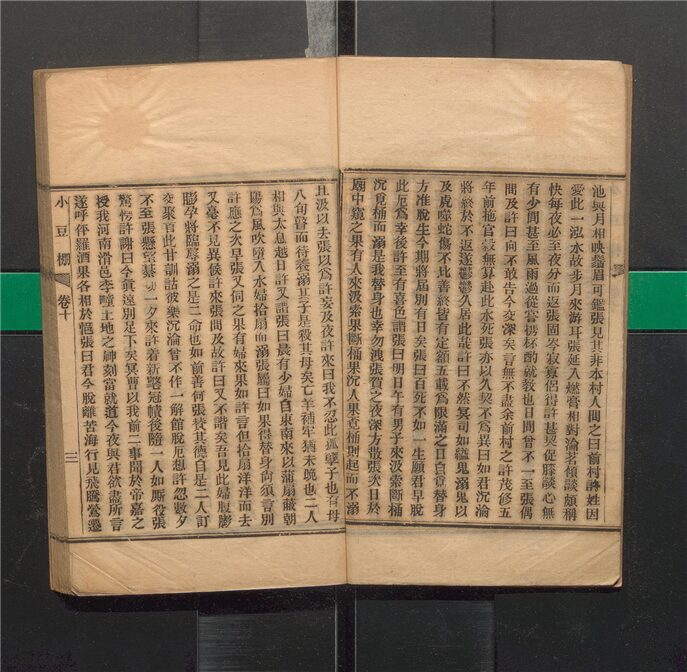 池與月相映鬚眉可鑑張見其非本村人問之曰前村許姓因
愛此一泓水故步月來游耳張延入燃膏相對淪茗傾談頗稱
快每夜必至夜分而返張固岑寂寡侶得許甚契從膝談心無
有少間甚至風雨過從嘗携杯酌就教也日間曾不一至張偶
問及許曰向不敢告今交深矣言無不盡余前村之許茂修五
年前拖官穀無算赴此水死張亦以久契不爲異曰如君沉淪
將終於不返遂鬱鬱久居此哉許曰不然冥司如縊鬼溺鬼以
及虎噬蛇傷不比善終皆有定額五載爲限滿之日自覓替身
方准脫生今期將屆別有日矣張曰百死不如一生願君早脫
此厄爲幸後許至有喜色語張曰明日午有男子來汲索斷桶
沉覓桶而溺是我替身也幸勿洩張質之夜深方散張次日於
廟中窺之果有人來汲索果斷桶果沉人果覓桶則起而不溺
且汲以去張以爲許妄及夜許來曰我不忍此孤孽子也有母
八旬瞽而待養溺其子是殺其母矣亡羊補牢猶未晚也二人
相與太息越日許又謂張曰晨有少婦自東南來以蒲扇蔽朝
陽爲風吹墮入水婦拾扇而溺張囑曰如果得替身尚須言別
許應之次早張又伺之果有婦來果如許言但拾扇洋洋而去
又毫不見異候許來張問及故許曰又不諧矣吾見此婦腹膨
膨孕將臨蓐溺之是二命也如前善何張贊其德自是二人訂
交聚首此甘訓詁彼樂沉淪曾不作一解館脫厄想許忽數夕
不至張懸望綦一夕來許着新鼇冠幘後隨一人如厮役張
驚愕許謝曰今眞遠別足下矣冥曹以我前二事聞於帝嘉之
授我河南滑邑李疃土地之神刻當就道今夜與君欲盡所言
遂呼伴羅酒果各相於悒張曰君今脫離苦海行見飛騰鶯遷
小豆棚 卷十
三